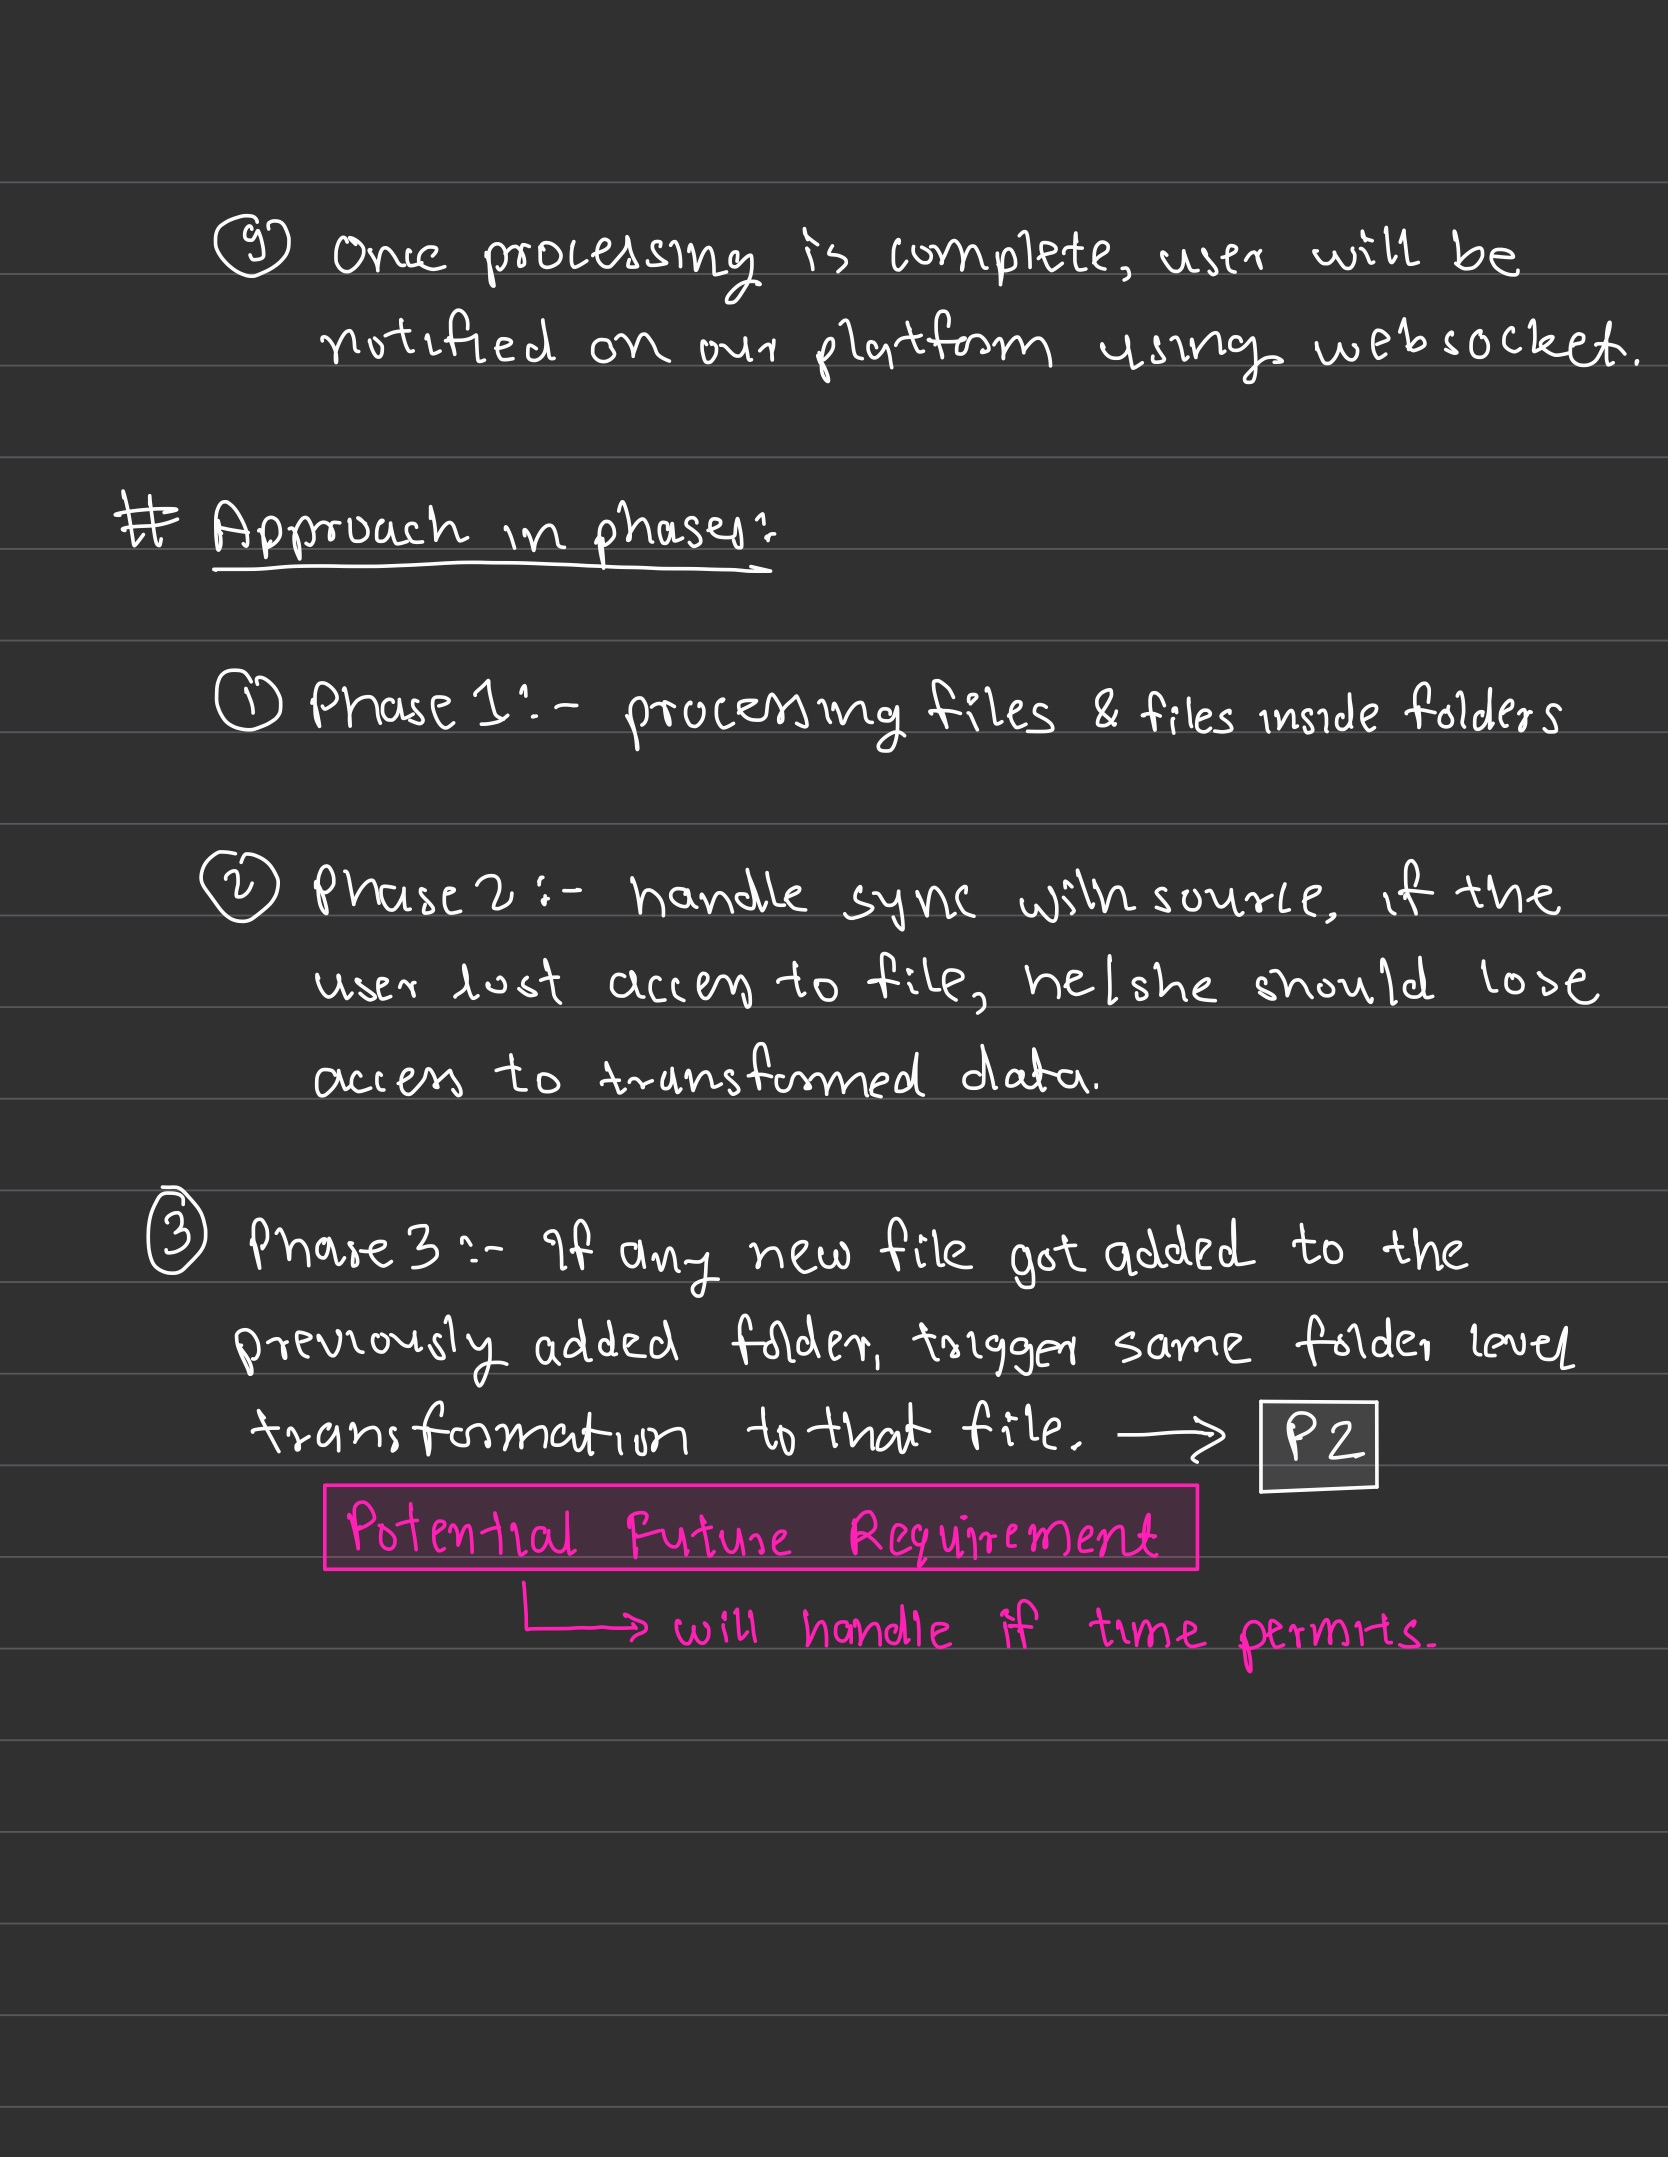 ⑨ Once processing is complete, user will be
notified on our platform using websocket.
# Approach in phases:
① Phase 1:- processing files & files inside folders
② Phase 2:- handle sync with source, if the
user lost access to file, he/she should lose
access to transformed data.
③ Phase 3:- If any new file got added to the
previously added folder, trigger same folder level
transformation to that file. → P2
Potential Future Requirement
↳ will handle if time permits.